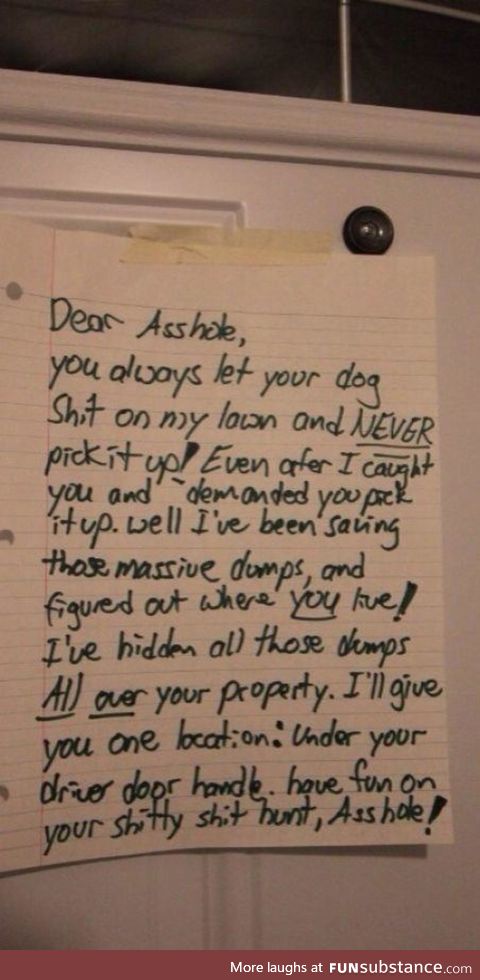 Dear Asshole,
you always let your dog
Shit on my lawn and NEVER
pick it up! Even afer I caught
you and demanded you pick
it up. well I've been saving
those massive dumps, and
figured out where you live!
I've hidden all those dumps
All over your property. I'll give
you one location: Under your
driver door handle. have fun on
your shitty shit hunt, Asshole!
More laughs at FUNsubstance.com